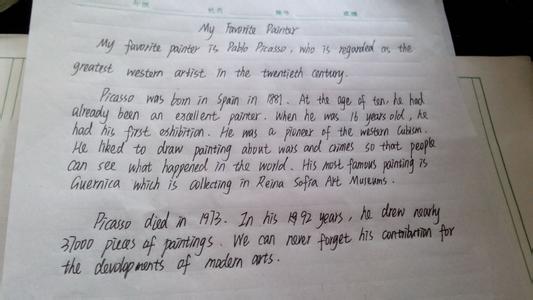 My Favorite Painter
My favorite painter is Pablo Picasso, who is regarded as the
greatest western artist in the twentieth century.
Picasso was born in Spain in 1881. At the age of ten, he had
already been an excellent painter. When he was 16 years old, he
had his first exhibition. He was a pioneer of the western Cubism.
He liked to draw painting about wars and crimes so that people
can see what happened in the world. His most famous painting is
Guernica which is collecting in Reina Sofia Art Museums.
Picasso died in 1973. In his 92 years, he drew nearly
37000 pieces of paintings. We can never forget his contribution for
the devolopments of modern arts.